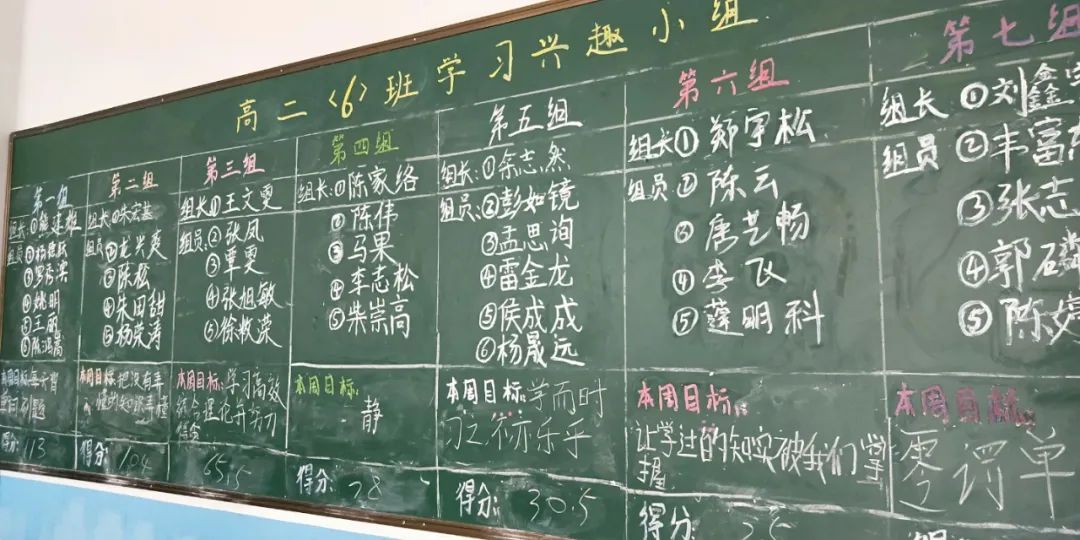 高二〈6〉班学习兴趣小组
第一组
组长:①
组员:②
③罗
④姚明
⑤王丽
⑥张鸿嵩
本周目标:每天背
得分: 113
第二组
组长:①朱宏基
组员:②龙兴爽
③陈松
④朱田甜
⑤杨荣涛
本周目标:把没有弄
懂的知识弄懂
得分: 104
第三组
组长①王文雯
组员:②张凤
③覃雯
④张旭敏
⑤徐敏荣
本周目标:学习高效
得分: 65.5
第四组
组长:①陈家络
②陈伟
③马果
④李志松
⑤柴崇高
本周目标:
静
得分: 28
第五组
组长:①余志然
组员:②彭如镜
③孟思询
④雷金龙
⑤侯成成
⑥杨晟远
本周目标:学而时
习之 亦乐乎
得分: 30.5
第六组
组长①郑宇松
组员②陈云
③唐艺畅
④李飞
⑤明科
本周目标:
让学过的知实被我们掌
握
得分:
第七组
组长①刘鑫
组员②丰富
③张志
④郭磷
⑤陈婷
本周目标:
零罚单